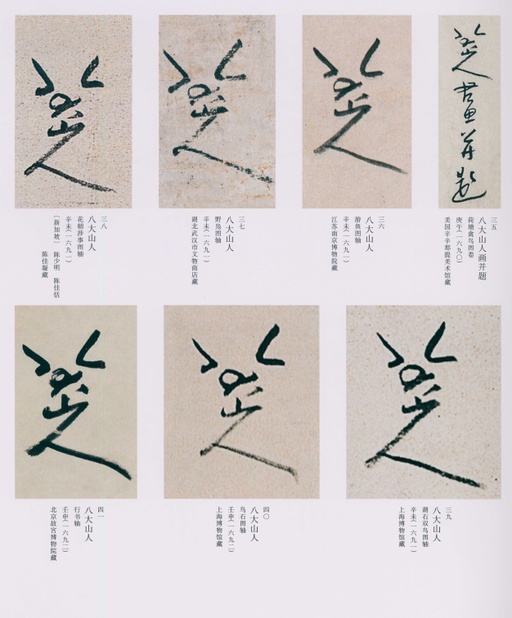 八大山人畫并題
三五
八大山人画并题
荷塘禽鸟图卷
庚午(一六九〇)
美国辛辛那提美术馆藏
八大山人
三六
八大山人
游鱼图轴
辛未(一六九一)
江苏南京博物院藏
八大山人
三七
八大山人
野凫图轴
辛未(一六九一)
湖北武汉市文物商店藏
八大山人
三八
八大山人
涉事图轴
辛未(一六九一)
[新加坡] 陈少明 陈佳恬
陈佳凝藏
八大山人
三九
八大山人
湖石双鸟图轴
辛未(一六九一)
上海博物馆藏
八大山人
四〇
八大山人
鸟石图轴
壬申(一六九二)
上海博物馆藏
八大山人
四一
八大山人
行书轴
壬申(一六九二)
北京故宫博物院藏